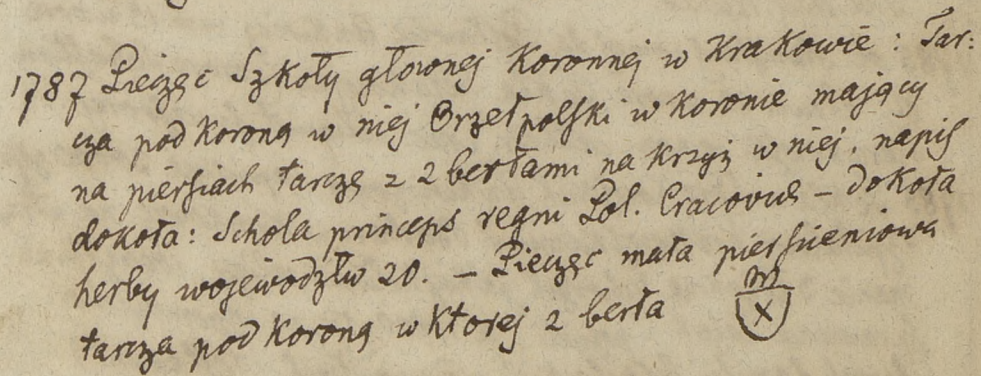 1787 Pieczęć Szkoły głownej Koronnej w Krakowie : Tar:
cza pod Koroną w niej Orzeł polski w Koronie mający
na piersiach tarczę z 2 berłami na Krzyż w niej, napis
dokoła: Schola princeps regni Pol. Cracoviae – dokoła
herby wojewodztw 20. – Pieczęc mała piersieniowa
tarcza pod Koroną w Ktorej 2 berła